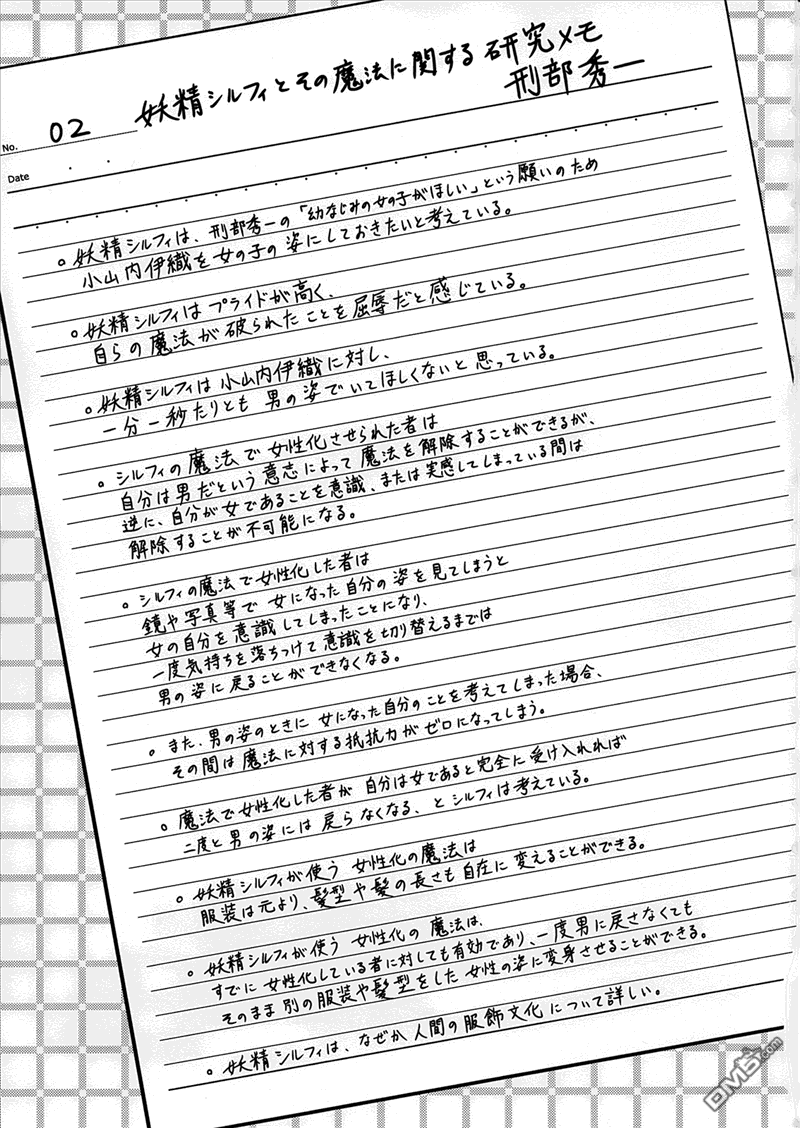 妖精シルフィとその魔法に関する研究メモ
刑部秀一
No. 02
Date
。妖精シルフィは、刑部秀一の「幼なじみの女の子がほしい」という願いのため
小山内伊織を女の子の姿にしておきたいと考えている。
。妖精シルフィはプライドが高く、
自らの魔法が破られたことを屈辱だと感じている。
。妖精シルフィは小山内伊織に対し、
一分一秒たりとも男の姿でいてほしくないと思っている。
。シルフィの魔法で女性化させられた者は
自分は男だという意志によって魔法を解除することができるが、
逆に、自分が女であることを意識、または実感してしまっている間は
解除することが不可能になる。
。シルフィの魔法で女性化した者は
鏡や写真等で女になった自分の姿を見てしまうと
女の自分を意識してしまったことになり、
一度気持ちを落ちつけて意識を切り替えるまでは
男の姿に戻ることができなくなる。
。また、男の姿のときに女になった自分のことを考えてしまった場合、
その間は魔法に対する抵抗力がゼロになってしまう。
。魔法で女性化した者が自分は女であると完全に受け入れれば
二度と男の姿には戻らなくなる、とシルフィは考えている。
。妖精シルフィが使う女性化の魔法は
服装は元より、髪型や髪の長さも自在に変えることができる。
。妖精シルフィが使う女性化の魔法は、
すでに女性化している者に対しても有効であり、一度男に戻さなくても
そのまま別の服装や髪型をした女性の姿に変身させることができる。
。妖精シルフィは、なぜか人間の服飾文化について詳しい。
DM5.com